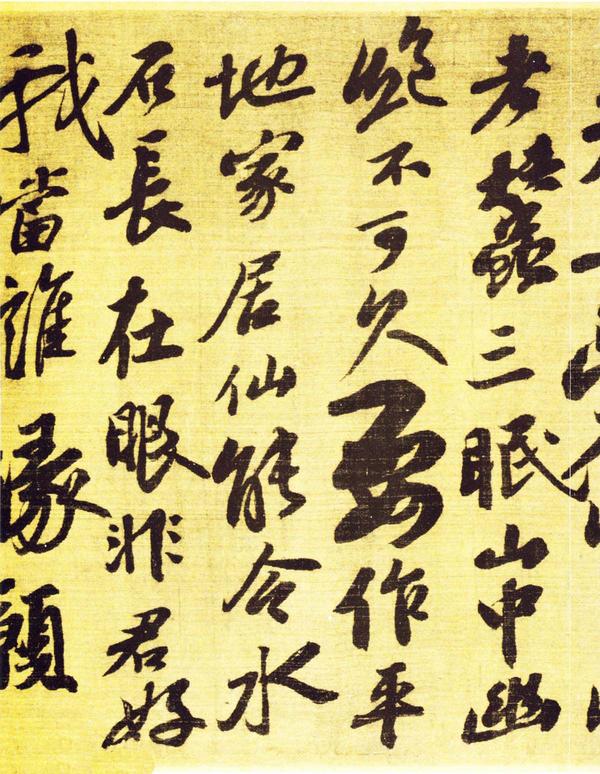 老蠶三眠山中幽
絕不可久要作平
地家居仙能令水
石長在眼非君好
我當誰緣願